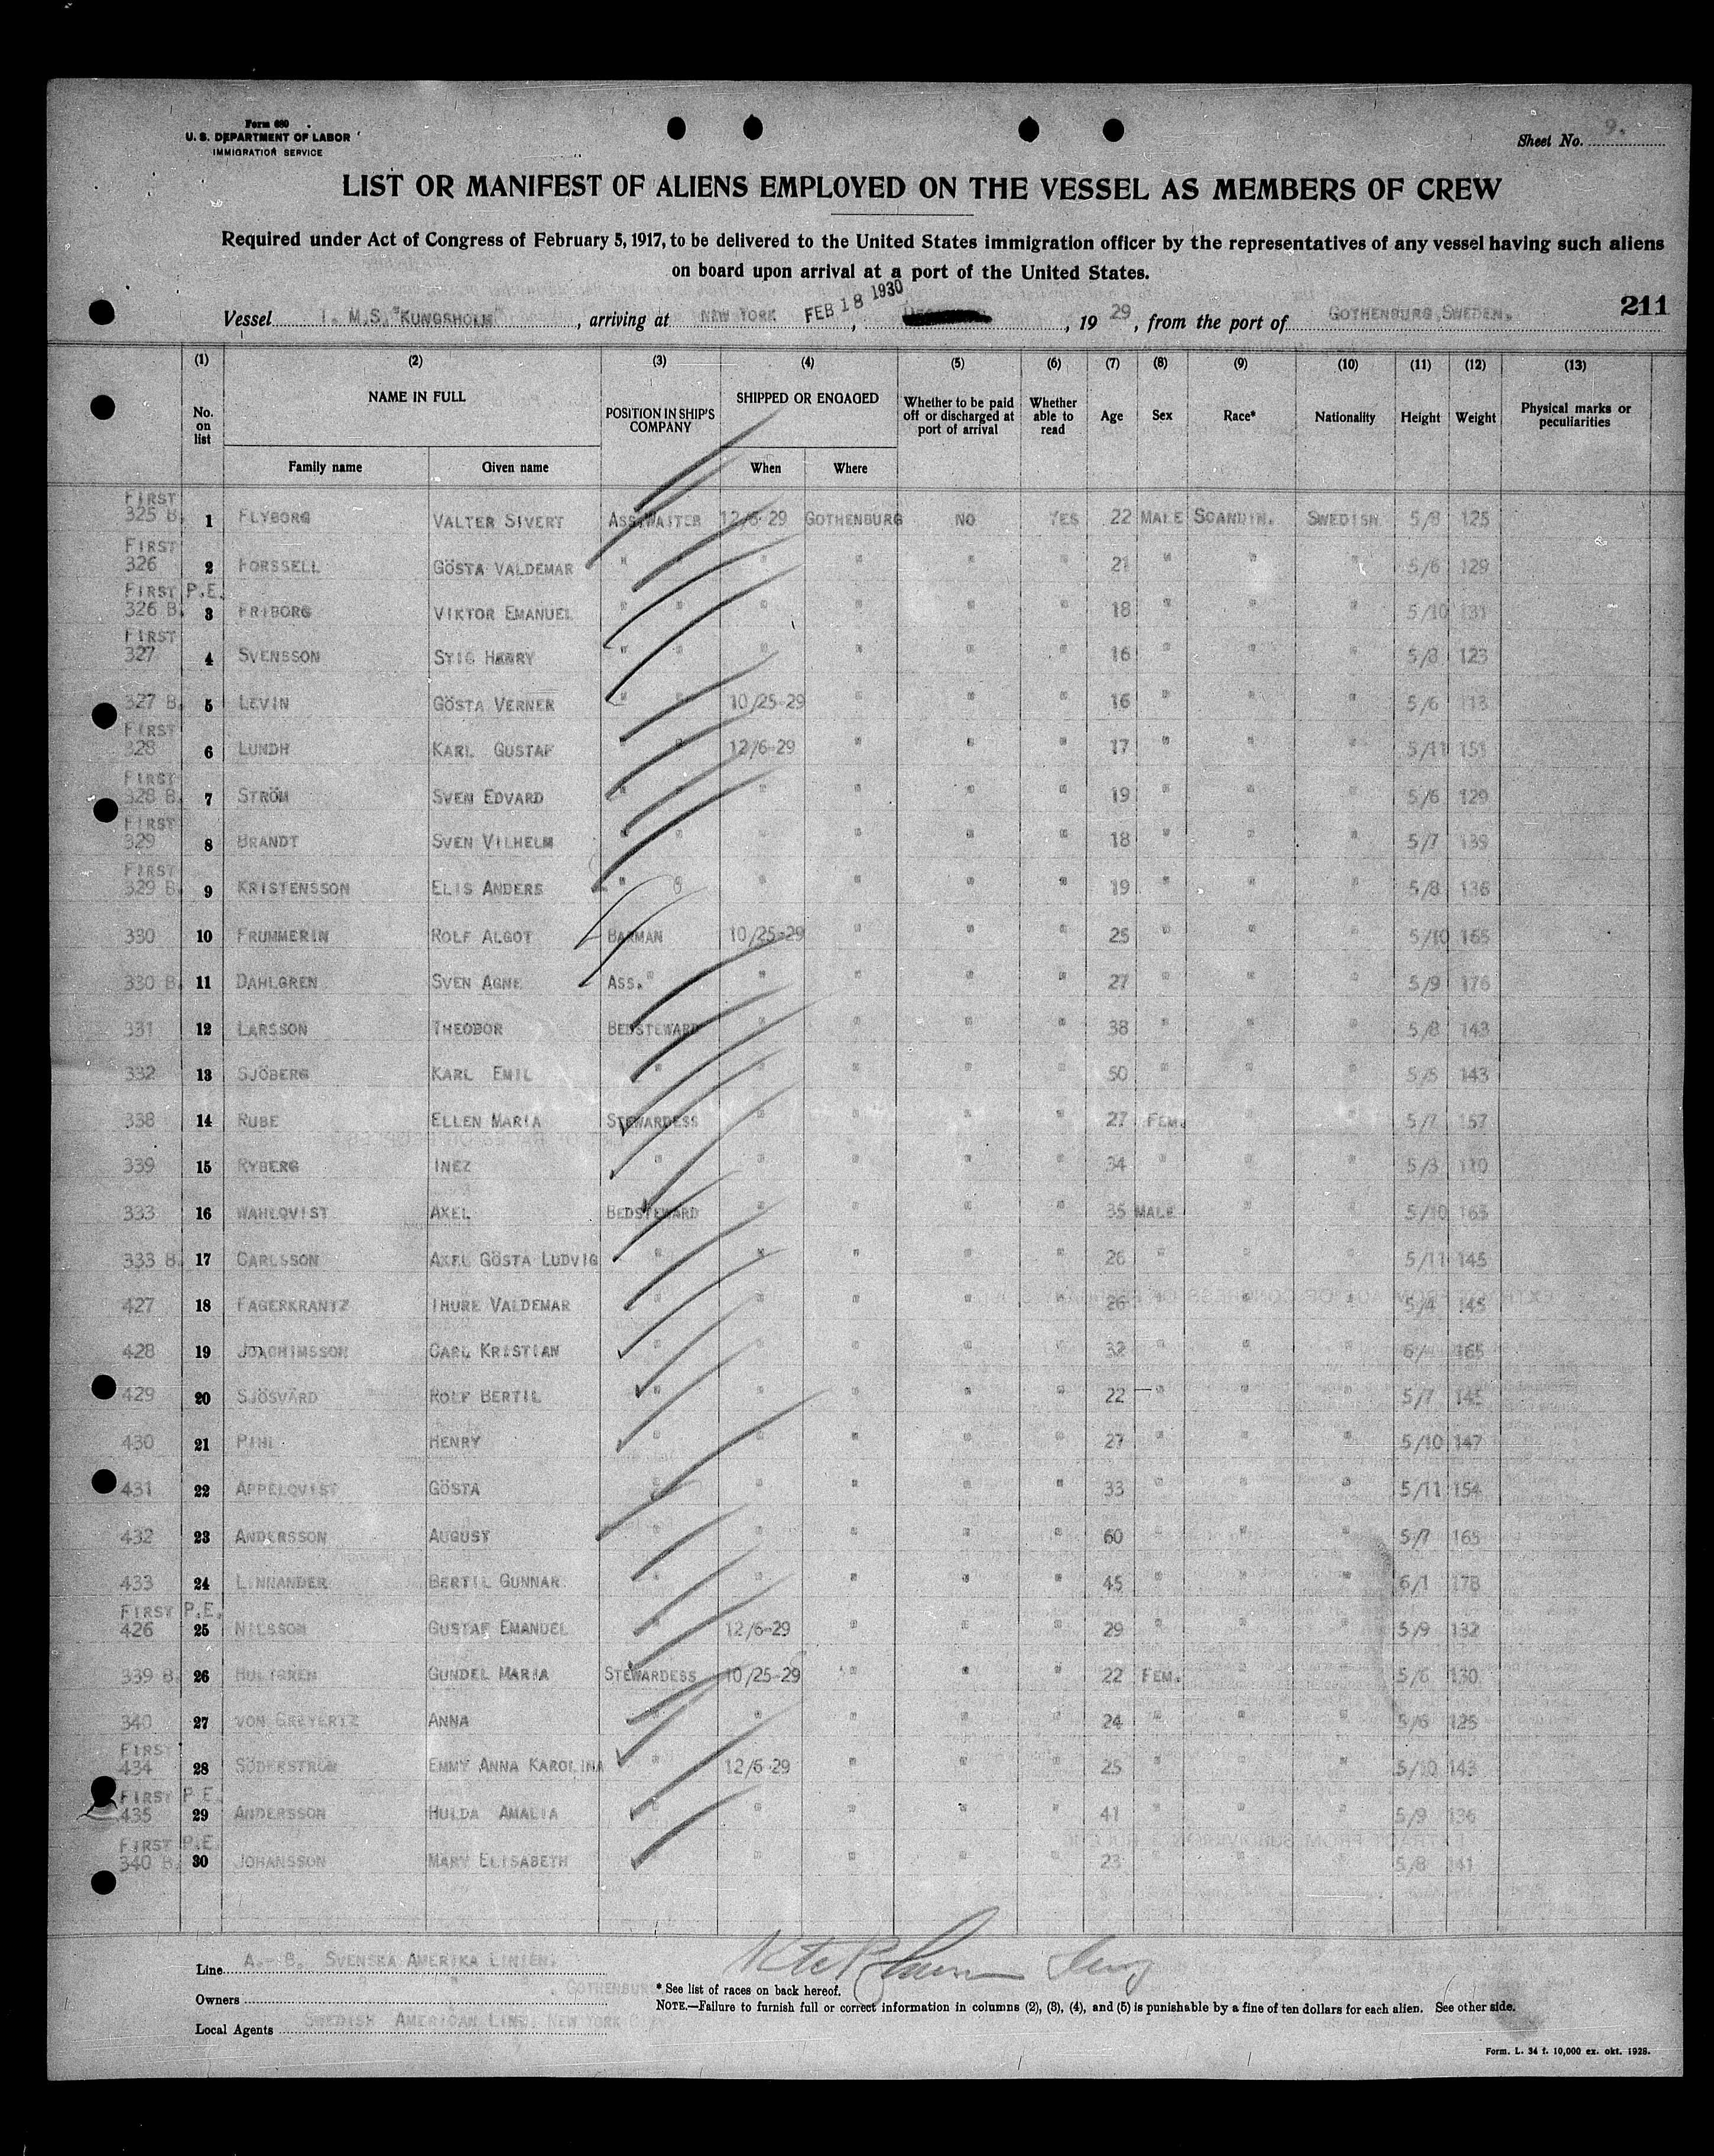 Form 680
U. S. DEPARTMENT OF LABOR
IMMIGRATION SERVICE
Sheet No. 9.
LIST OR MANIFEST OF ALIENS EMPLOYED ON THE VESSEL AS MEMBERS OF CREW
Required under Act of Congress of February 5, 1917, to be delivered to the United States immigration officer by the representatives of any vessel having such aliens
on board upon arrival at a port of the United States.
211
Vessel M.S. "KUNGSHOLM", arriving at NEW YORK FEB 18 1930, , 1929, from the port of GOTHENBURG, SWEDEN.
(1) (2) (3) (4) (5) (6) (7) (8) (9) (10) (11) (12) (13)
No. on list NAME IN FULL Family name Given name POSITION IN SHIP'S COMPANY SHIPPED OR ENGAGED When Where Whether to be paid off or discharged at port of arrival Whether able to read Age Sex Race* Nationality Height Weight Physical marks or peculiarities
FIRST 325 B. 1 FLYBORG VALTER SIVERT ASS.WAITER 12/6-29 GOTHENBURG NO YES 22 MALE SCANDIN. SWEDISH 5/8 125
FIRST 326 2 FORSSELL GÖSTA VALDEMAR " " " " " " 21 " " " 5/6 129
FIRST P.E. 326 B. 3 FRIBORG VIKTOR EMANUEL " " " " " " 18 " " " 5/10 131
FIRST 327 4 SVENSSON STIG HENRY " " " " " " 16 " " " 5/8 123
327 B. 5 LEVIN GÖSTA VERNER " " 10/25-29 " " " 16 " " " 5/6 113
FIRST 328 6 LUNDH KARL GUSTAF " " 12/6-29 " " " 17 " " " 5/11 151
FIRST 328 B. 7 STRÖM SVEN EDVARD " " " " " " 19 " " " 5/6 129
FIRST 329 8 BRANDT SVEN VILHELM " " " " " " 18 " " " 5/7 139
FIRST 329 B. 9 KRISTENSSON ELIS ANDERS " " " " " " 19 " " " 5/8 136
330 10 FRUMMERIN ROLF ALGOT BARMAN 10/25-29 " " " 25 " " " 5/10 165
330 B. 11 DAHLGREN SVEN AGNE ASS. " " " " " 27 " " " 5/9 176
331 12 LARSSON THEODOR BEDSTEWARD " " " " 38 " " " 5/8 143
332 13 SJÖBERG KARL EMIL " " " " " 50 " " " 5/5 143
338 14 RUBE ELLEN MARIA STEWARDESS " " " " 27 FEM. " " 5/7 157
339 15 RYBERG INEZ " " " " " 34 " " " 5/3 110
333 16 WAHLQVIST AXEL BEDSTEWARD " " " " 35 MALE " " 5/10 165
333 B. 17 CARLSSON AXEL GÖSTA LUDVIG " " " " " 26 " " " 5/11 145
427 18 FAGERKRANTZ THURE VALDEMAR " " " " " 26 " " " 5/4 145
428 19 JOACHIMSSON CARL KRISTIAN " " " " " 32 " " " 6/4 165
429 20 SJÖSVÄRD ROLF BERTIL " " " " " 22 " " " 5/7 145
430 21 PIHL HENRY " " " " " 27 " " " 5/10 147
431 22 APPELQVIST GÖSTA " " " " " 33 " " " 5/11 154
432 23 ANDERSSON AUGUST " " " " " 60 " " " 5/7 165
433 24 LINNANDER BERTIL GUNNAR " " " " " 45 " " " 6/1 178
FIRST P.E. 426 25 NILSSON GUSTAF EMANUEL " 12/6-29 " " " 29 " " " 5/9 132
339 B. 26 HULTGREN GUNDEL MARIA STEWARDESS 10/25-29 " " " 22 FEM. " " 5/6 130
340 27 VON GREYERTZ ANNA " " " " " 24 " " " 5/6 125
FIRST 434 28 SÖDERSTRÖM EMMY ANNA KAROLINA " 12/6-29 " " " 25 " " " 5/10 143
FIRST P.E. 435 29 ANDERSSON HULDA AMALIA " " " " " 41 " " " 5/9 136
FIRST P.E. 340 B. 30 JOHANSSON MARY ELISABETH " " " " " 23 " " " 5/8 141
Line A.-B. SVENSKA AMERIKA LINIEN.
Owners " " " , GOTHENBURG
Local Agents SWEDISH AMERICAN LINE, NEW YORK
* See list of races on back hereof.
NOTE.—Failure to furnish full or correct information in columns (2), (3), (4), and (5) is punishable by a fine of ten dollars for each alien. See other side.
Form. L. 34 f. 10,000 ex. okt. 1928.